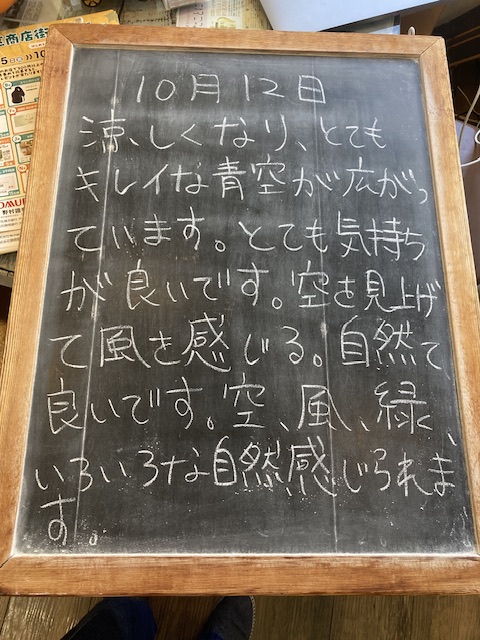 10月12日
涼しくなり、とても
キレイな青空が広がっ
ています。とても気持ち
が良いです。空を見上げ
て風を感じる。自然て
良いです。空、風、緑、
いろいろな自然感じられま
す。
商店街